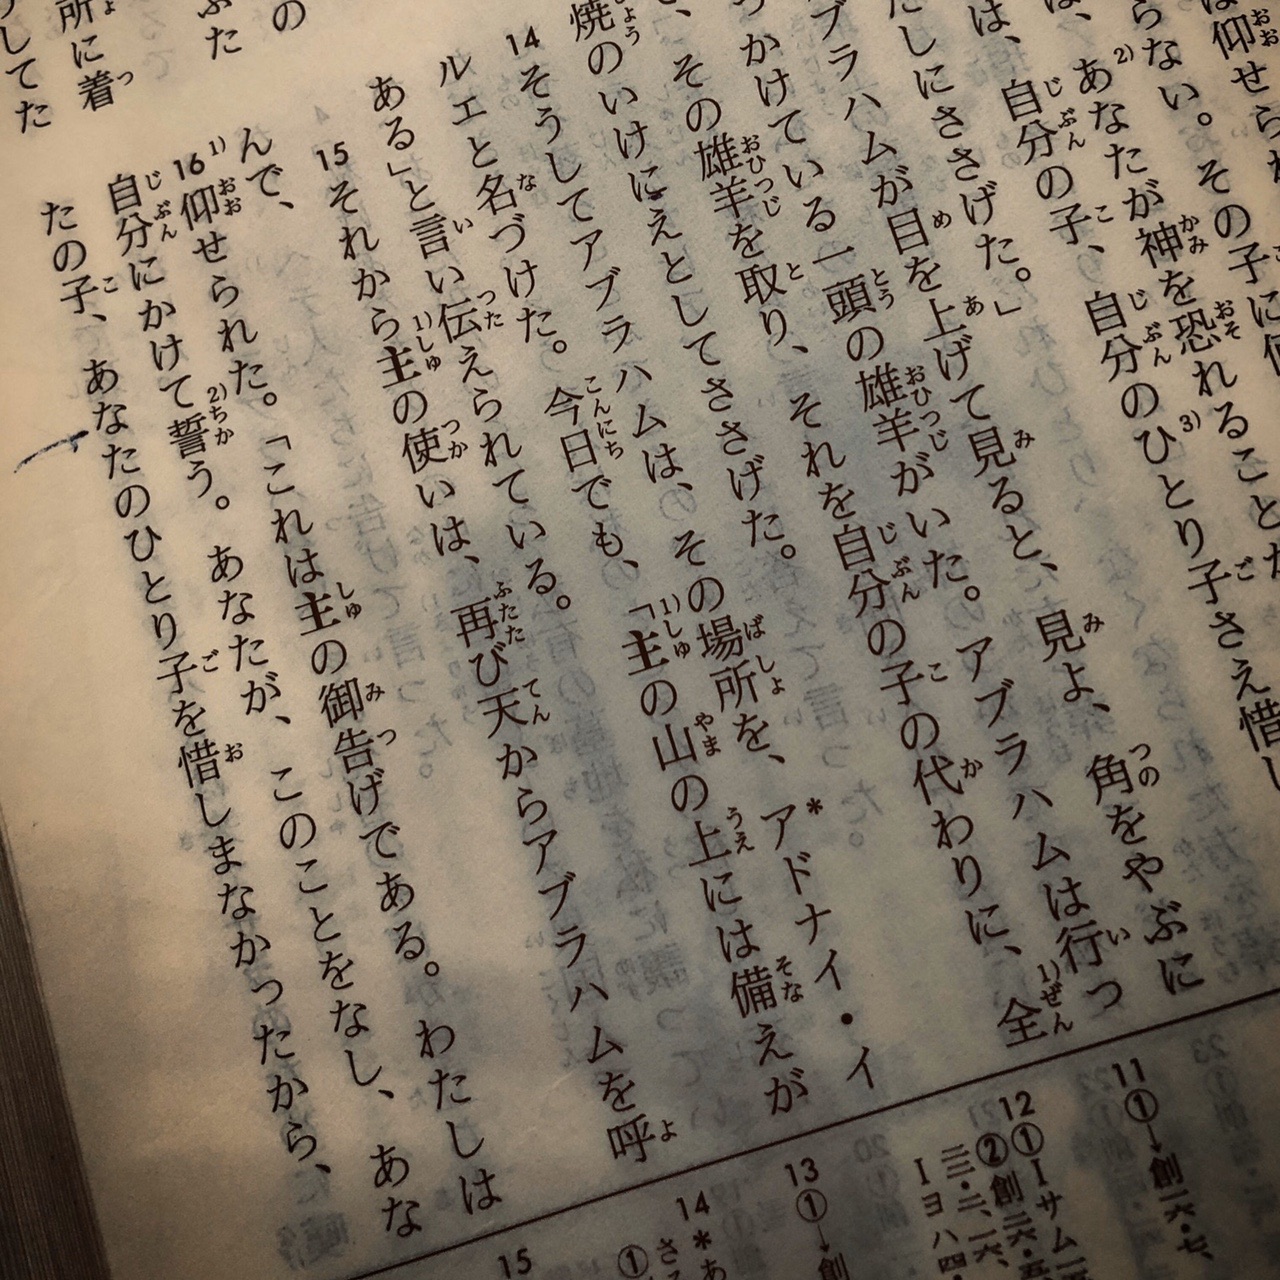 仰せられ
らない。その子に何
は、2)あなたが神を恐れることが
は、自分の子、自分の3)ひとり子さえ惜し
たしにささげた。」
ブラハムが目を上げて見ると、見よ、角をやぶに
っかけている一頭の雄羊がいた。アブラハムは行っ
、その雄羊を取り、それを自分の子の代わりに、1)全
焼のいけにえとしてささげた。
14 そうしてアブラハムは、その場所を、*アドナイ・イ
ルエと名づけた。今日でも、「1)主の山の上には備えが
ある」と言い伝えられている。
15 それから1)主の使いは、再び天からアブラハムを呼
んで、
16 1)仰せられた。「これは主の御告げである。わたしは
自分にかけて2)誓う。あなたが、このことをなし、あな
たの子、あなたのひとり子を惜しまなかったから、
の
ぶた
所に着
してた
11①→創二六・七、
12①Ⅰサム一
②創二六・五
二二・二、一六、
Ⅰヨハ四・
13①→創
14*あ
さ
①
15